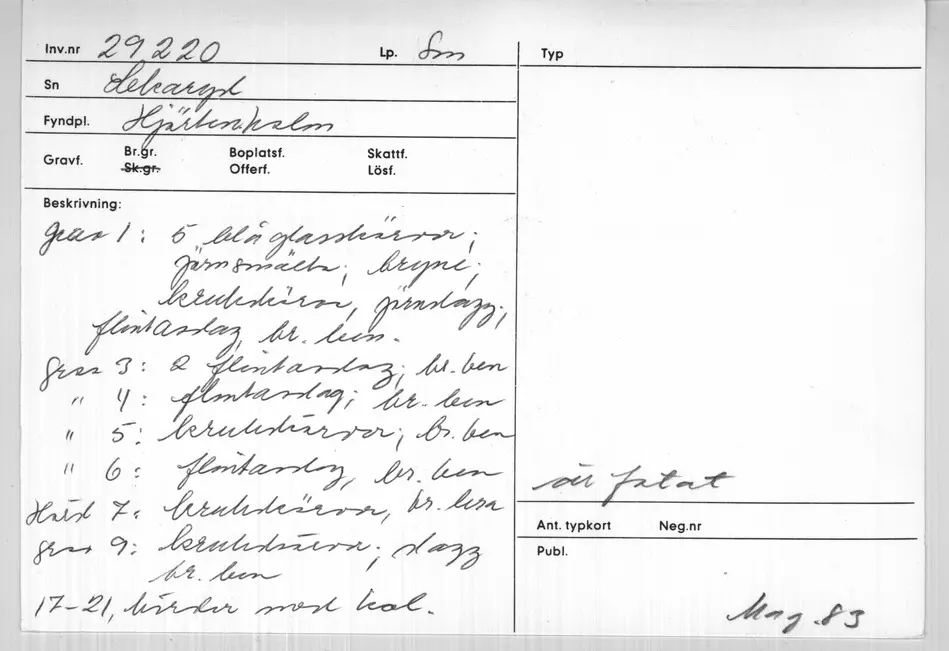 Inv.nr 29220 Lp. Sm
Sn Sekaryd
Fyndpl. Hjärtenholm
Gravf. Br.gr. Boplatsf. Skattf.
Sk.gr. Offerf. Lösf.
Beskrivning:
grav 1: 5 blå glasskärvor;
järnsmälta; bryne;
krukskärvor, järnslagg;
flintavslag, br. ben.
grav 3: 2 flintavslag; br. ben
" 4: flintavslag; br. ben
" 5: krukskärvor; br. ben
" 6: flintavslag, br. ben
Härd 7: krukskärvor, br. lera
grav 9: krukskärvor; slagg
br. ben
17-21, härdar med kol.
Typ
är fotat
Ant. typkort Neg.nr
Publ.
Mag. 83